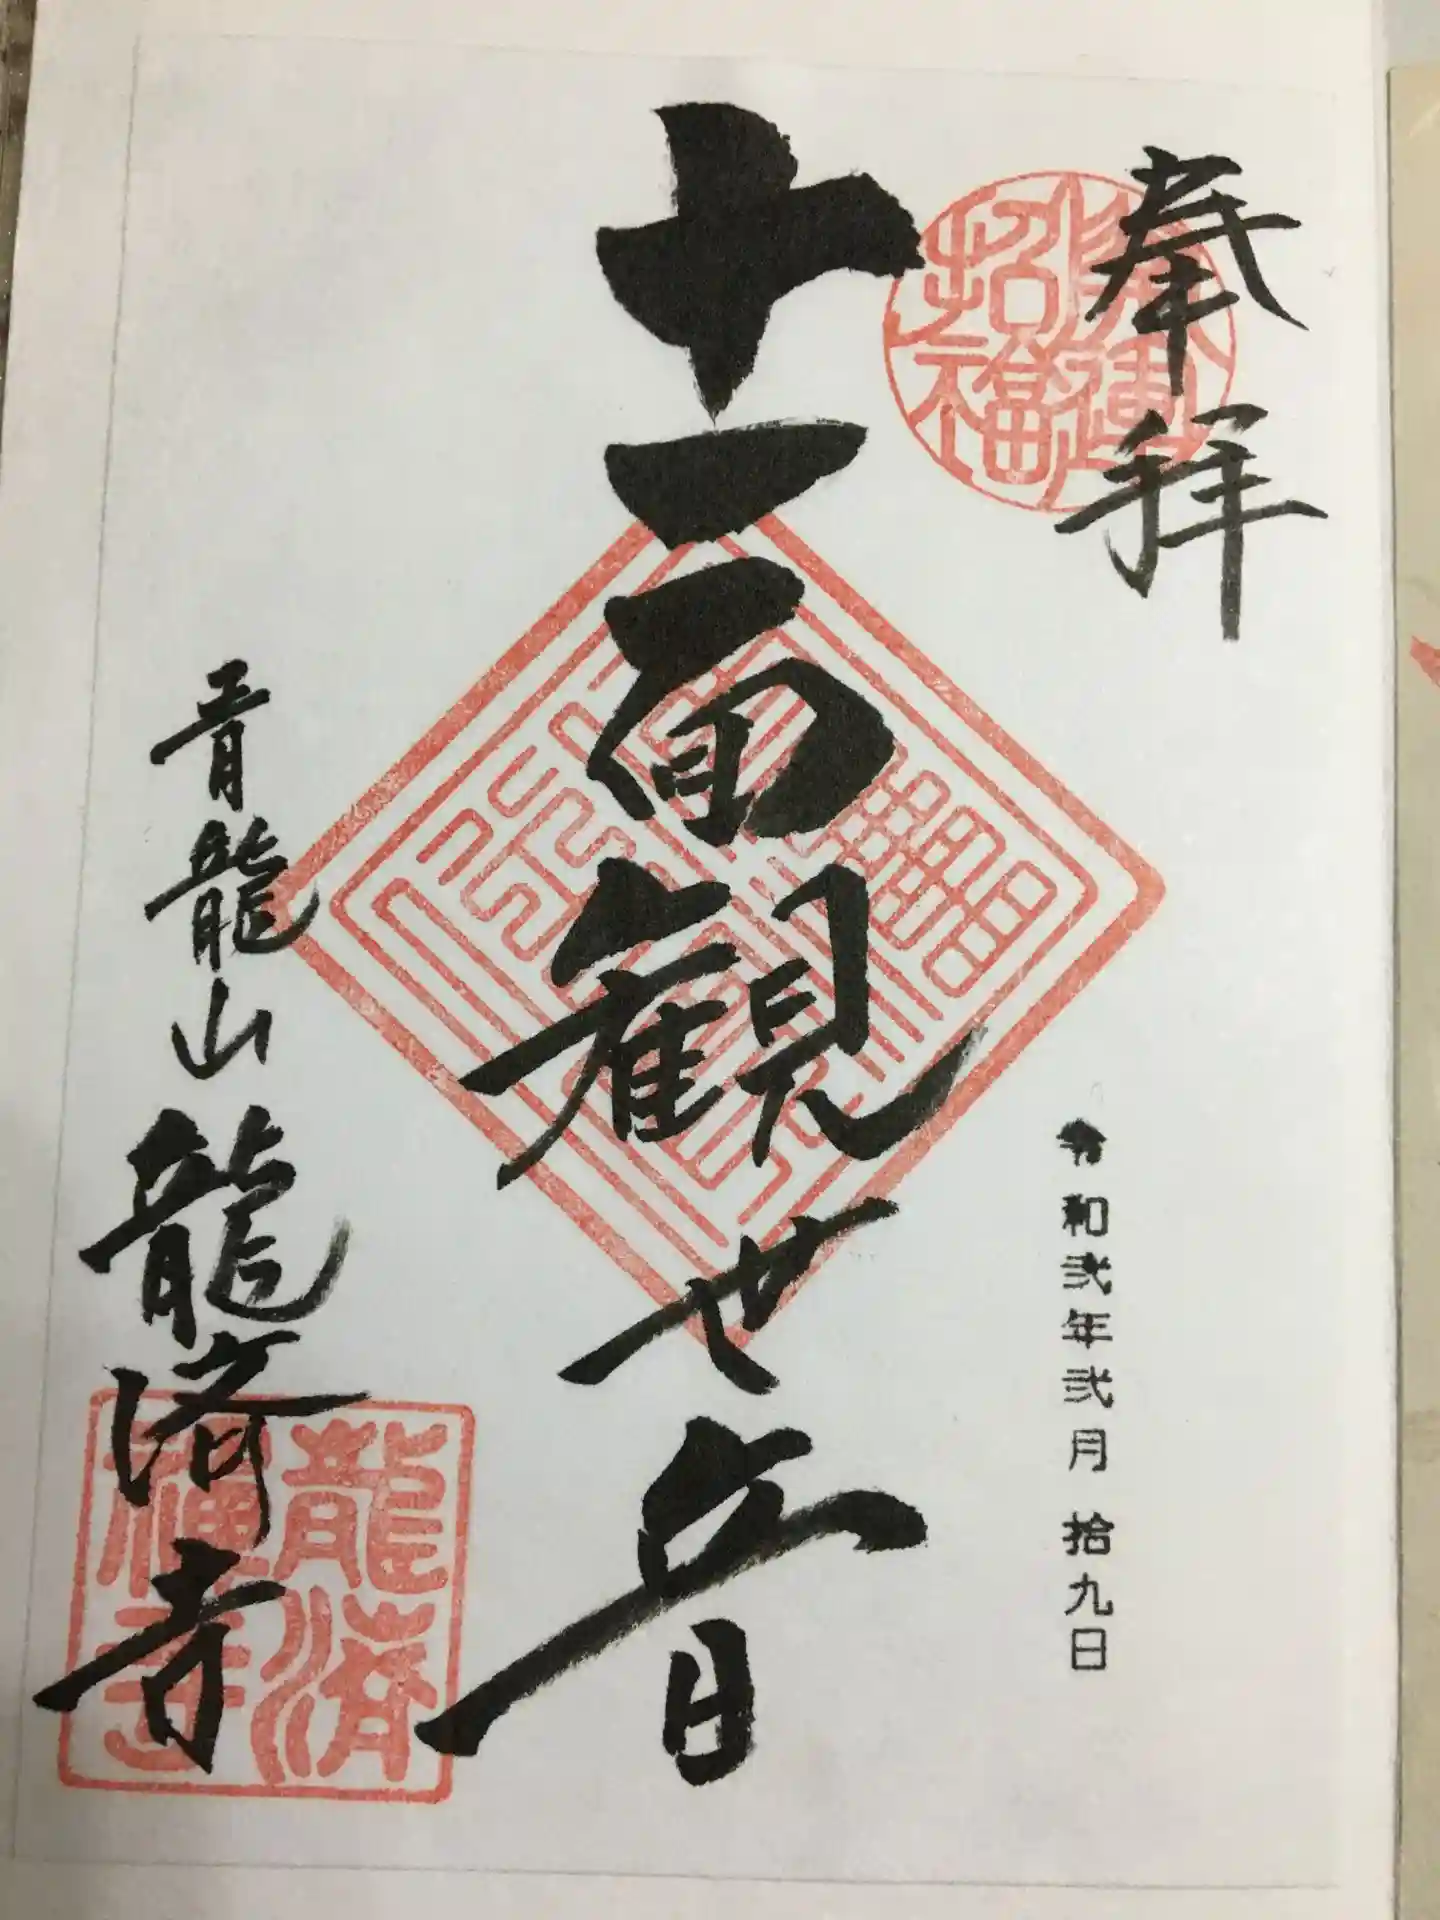 奉拝
開運招福
令和弐年弐月 拾九日
十一面観世音
青龍山 龍済寺
龍済禅寺